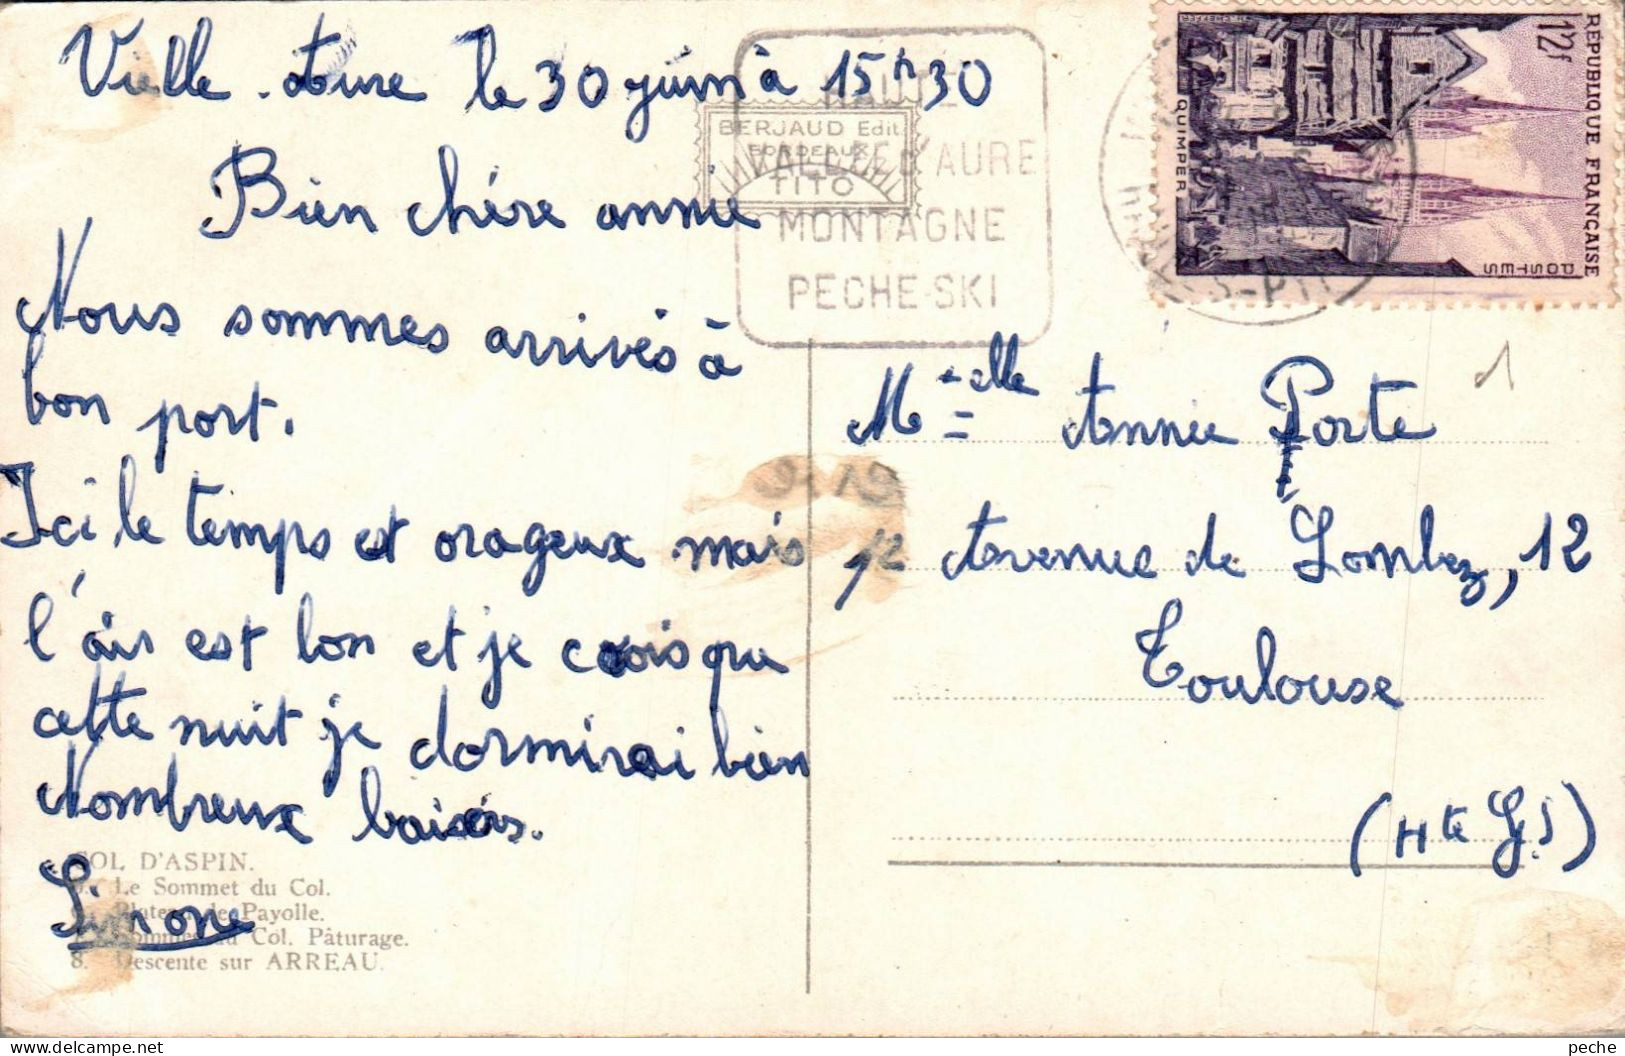 Vielle-Aure le 30 juin à 15h30
Bien chère annie
Nous sommes arrivés à
bon port.
Ici le temps est orageux mais
l'air est bon et je crois que
cette nuit je dormirai bien
Nombreux baisers.
Simone
COL D'ASPIN.
Le Sommet du Col.
Plateau de Payolle.
Sommet du Col. Pâturage.
8. Descente sur ARREAU.
BERJAUD Edit.
BORDEAUX
TITO
HAUTE
VALLEE d'AURE
MONTAGNE
PECHE-SKI
REPUBLIQUE FRANÇAISE
12f
POSTES
QUIMPER
1
Melle Annie Porte
12 Avenue de Lombez, 12
Toulouse
(Hte G.)
peche